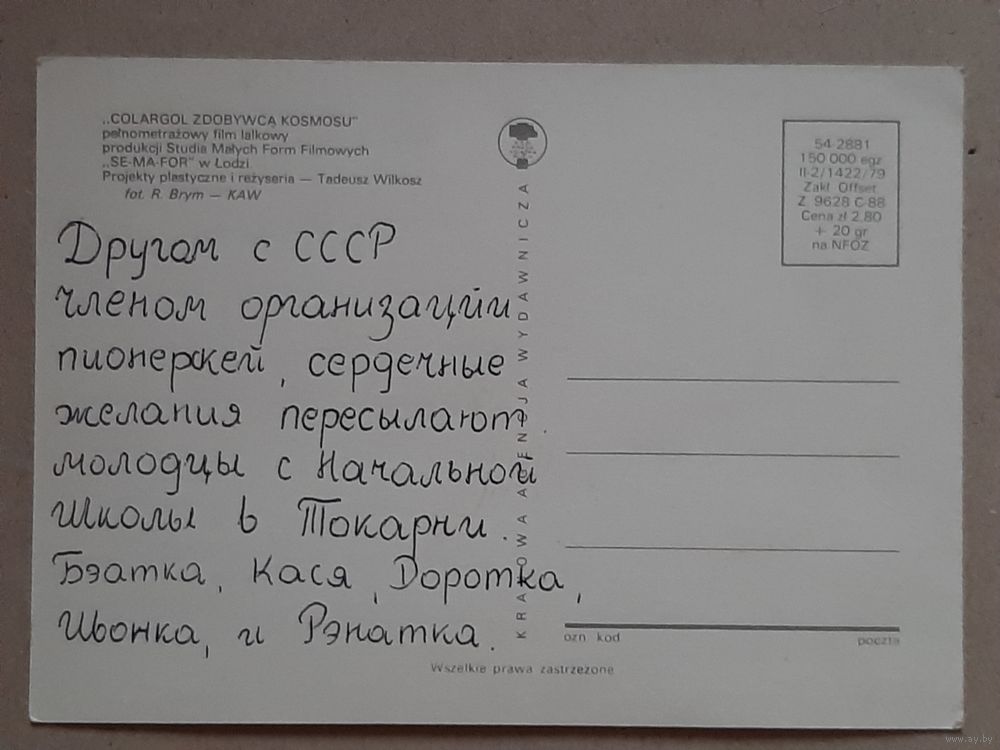 „COLARGOL ZDOBYWCĄ KOSMOSU”
pełnometrażowy film lalkowy
produkcji Studia Małych Form Filmowych
„SE-MA-FOR” w Łodzi
Projekty plastyczne i reżyseria — Tadeusz Wilkosz
fot. R. Brym — KAW
54 2881
150 000 egz
II-2/1422/79
Zakł Offset
Z 9628 C-88
Cena zł 2.80
+ 20 gr
na NFOZ
Другом с СССР
членом организаций
пионерскей, сердечные
желания пересылают
молодцы с Начальной
Школы в Токарни.
Бэатка, Кася, Доротка,
Ивонка, и Рэнатка.
KRAJOWA AGENCJA WYDAWNICZA
ozn kod
poczta
Wszelkie prawa zastrzeżone
www.ay.by